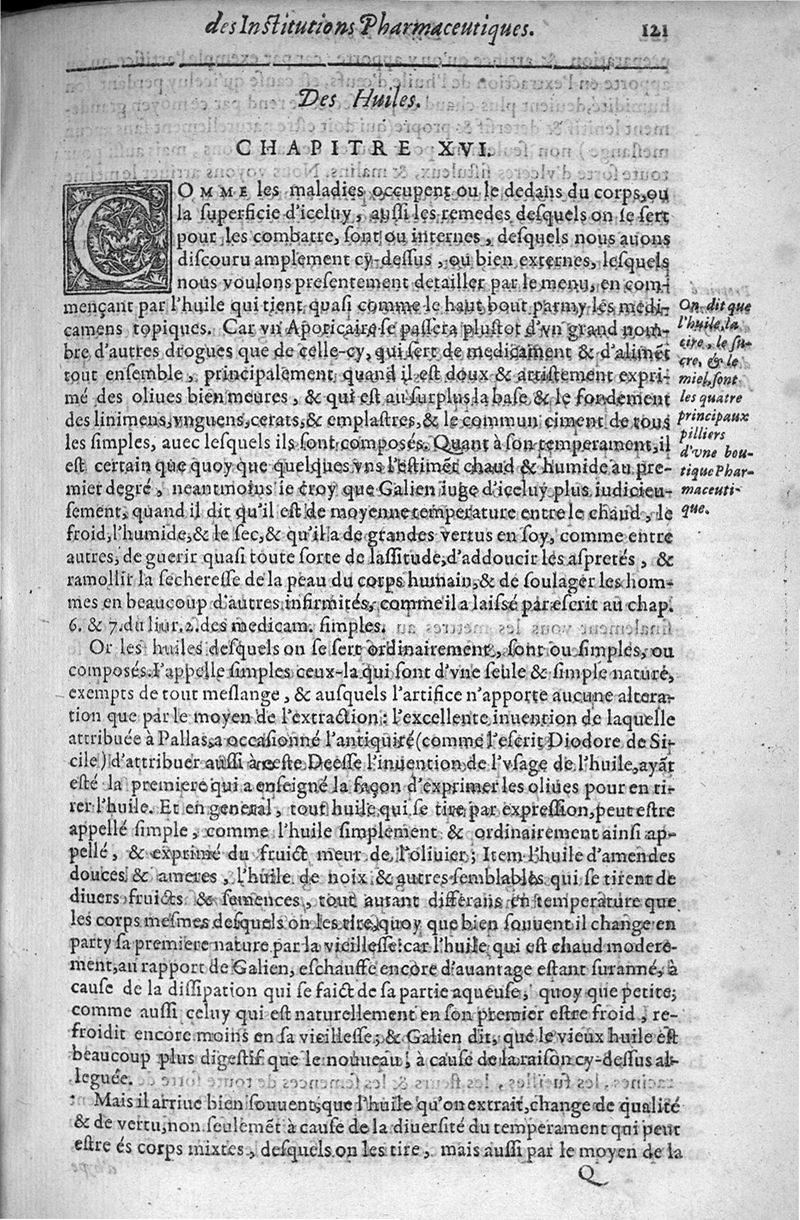 des Institutions Pharmaceutiques. 121
Des Huiles.
CHAPITRE XVI.
COMME les maladies occupent ou le dedans du corps, ou
la superficie d'iceluy, aussi les remedes desquels on se sert
pour les combatre, sont ou internes, desquels nous auons
discouru amplement cy-dessus, ou bien externes, lesquels
nous voulons presentement detailler par le menu, en com-
mençant par l'huile qui tient quasi comme le haut bout parmy les medi-
camens topiques. Car vn Apoticaire se passera plustot d'vn grand nom-
bre d'autres drogues que de celle-cy, qui sert de medicament & d'alimẽt
tout ensemble, principalement quand il est doux & artistement expri-
mé des oliues bien meures, & qui est au surplus la base & le fondement
des linimens, vnguens, cerats, & emplastres, & le commun ciment de tous
les simples, auec lesquels ils sont composés. Quant à son temperament, il
est certain que quoy que quelques vns l'estimẽt chaud & humide au pre-
mier degré, neantmoins ie croy que Galien iuge d'iceluy plus iudicieu-
sement, quand il dit qu'il est de moyenne temperature entre le chaud, le
froid, l'humide, & le sec, & qu'il a de grandes vertus en soy, comme entre
autres, de guerir quasi toute sorte de lassitude, d'addoucir les aspretés, &
ramollir la secheresse de la peau du corps humain, & de soulager les hom-
mes en beaucoup d'autres infirmités, comme il a laissé par escrit au chap.
6. & 7. du liur. 2. des medicam. simples.
Or les huiles desquels on se sert ordinairement, sont ou simples, ou
composés. I'appelle simples ceux-la qui sont d'vne seule & simple nature,
exempts de tout meslange, & ausquels l'artifice n'apporte aucune altera-
tion que par le moyen de l'extraction: l'excellente inuention de laquelle
attribuée à Pallas, a occasionné l'antiquité (comme l'escrit Diodore de Si-
cile) d'attribuer aussi à ceste Deesse l'inuention de l'vsage de l'huile, ayãt
esté la premiere qui a enseigné la façon d'exprimer les oliues pour en ti-
rer l'huile. Et en general, tout huile qui se tire par expression, peut estre
appellé simple, comme l'huile simplement & ordinairement ainsi ap-
pellé, & exprimé du fruict meur de l'oliuier; Item l'huile d'amendes
douces & ameres, l'huile de noix & autres semblables qui se tirent de
diuers fruicts & semences, tout autant differans en temperature que
les corps mesmes desquels on les tire, quoy que bien souuent il change en
party sa premiere nature par la vieillesse: car l'huile qui est chaud moderé-
ment, au rapport de Galien, eschauffe encore d'auantage estant suranné, à
cause de la dissipation qui se faict de sa partie aqueuse, quoy que petite;
comme aussi celuy qui est naturellement en son premier estre froid, re-
froidit encore moins en sa vieillesse; & Galien dit, que le vieux huile est
beaucoup plus digestif que le nouueau, à cause de la raison cy-dessus al-
leguée.
Mais il arriue bien souuent, que l'huile qu'on extrait, change de qualité
& de vertu, non seulemẽt à cause de la diuersité du temperament qui peut
estre és corps mixtes, desquels on les tire, mais aussi par le moyen de la
Q
On dit que
l'huile, la
cire, le su-
cre, & le
miel, sont
les quatre
principaux
pilliers
d'vne bou-
tique Phar-
maceuti-
que.